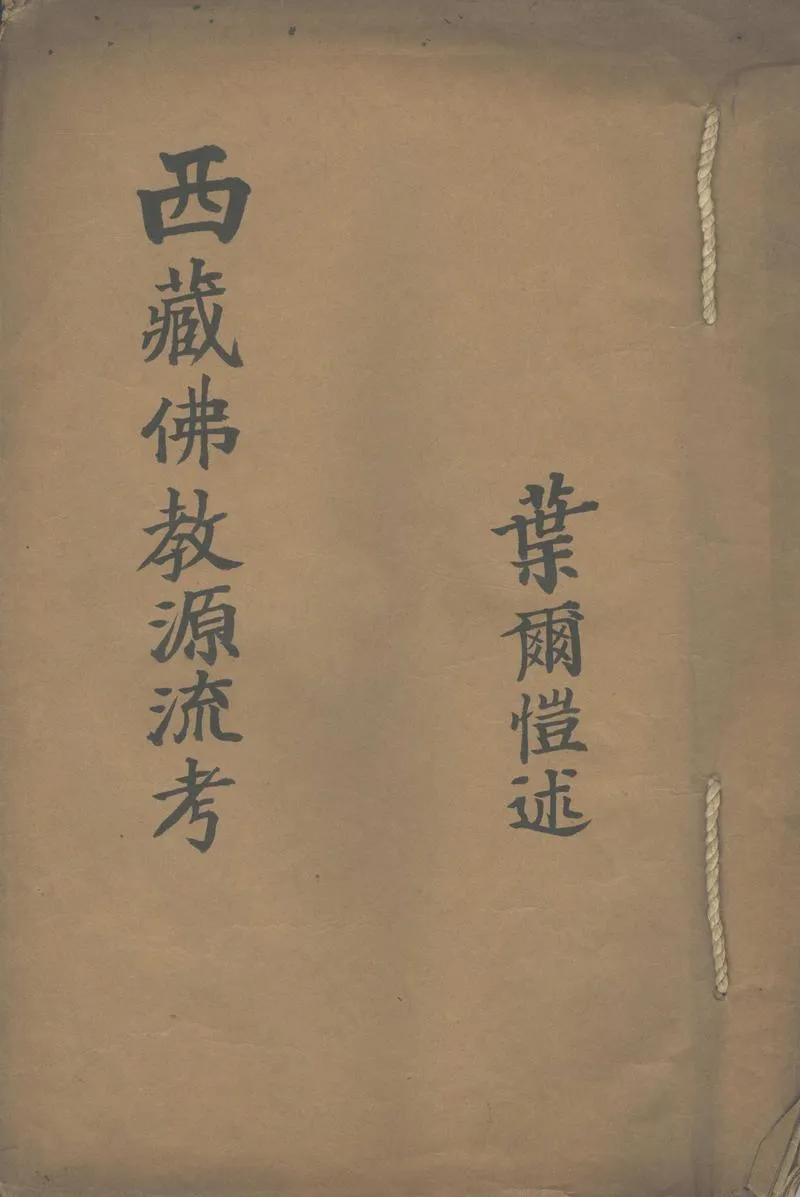 葉爾愷述
西藏佛教源流考